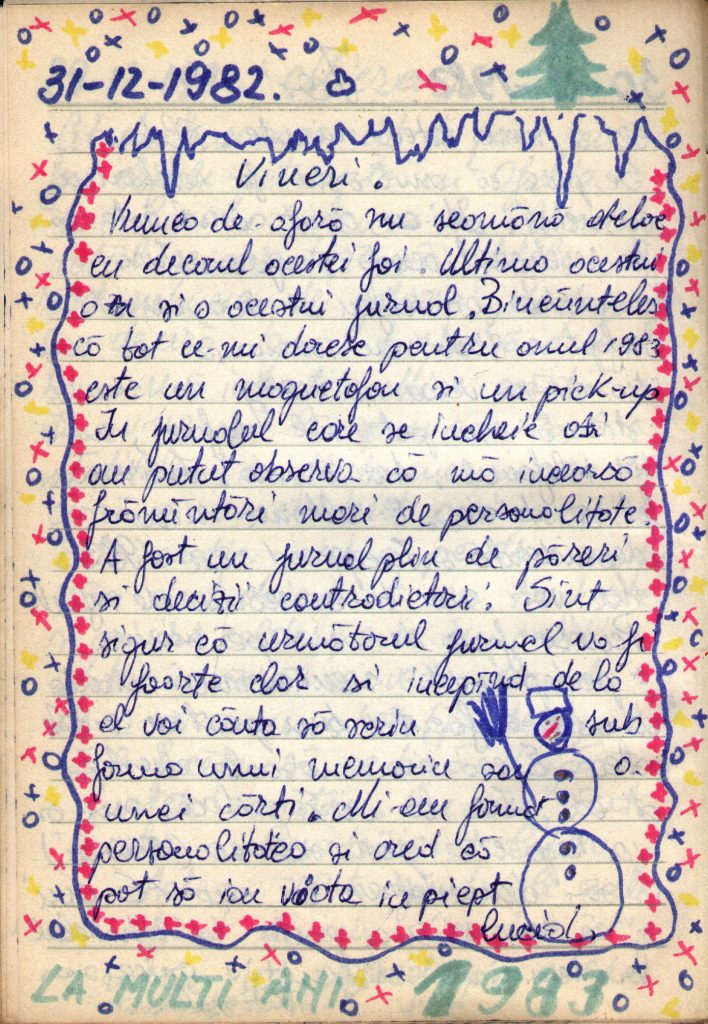 31-12-1982.
Vineri.
Vremea de-afară nu seamănă deloc
cu decorul acestei foi. Ultima acestui
an și a acestui jurnal. Bineînțeles
că tot ce-mi doresc pentru anul 1983
este un magnetofon si un pick-up
In jurnalul care se incheie azi
am putut observa că mă incearcă
frămîntări mari de personalitate.
A fost un jurnal plin de păreri
si decizii contradictorii. Sint
sigur că următorul jurnal va fi
foarte clar si incepînd de la
el voi căuta să scriu sub
forma unui memoriu sau a
unei cărti. Mi-am format
personalitatea si cred că
pot să iau viata in piept
LA MULTI ANI 1983